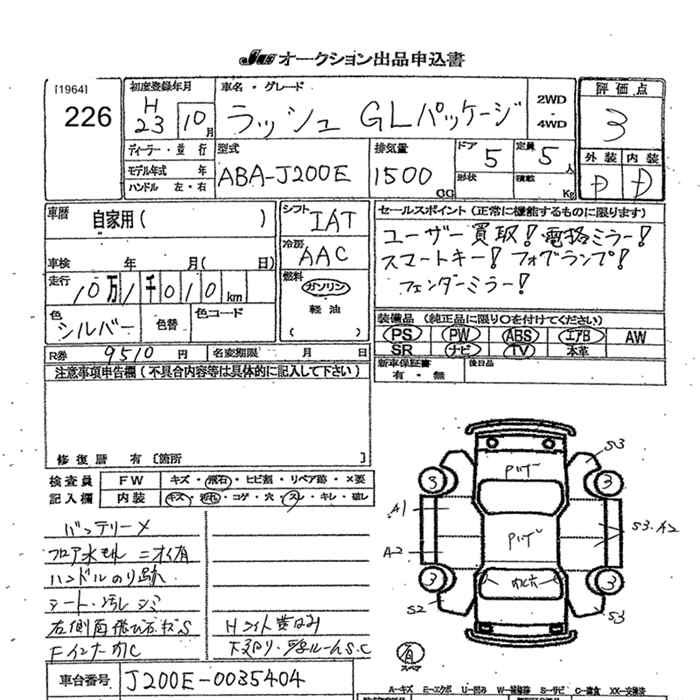 JUS オークション出品申込書
[1964]
226
初度登録年月
H 23 10月
車名・グレード
ラッシュ GLパッケージ
2WD・4WD
評価点
3
ディーラー・並行
モデル年式 年
ハンドル 左・右
型式
ABA-J200E
排気量
1500 CC
ドア 5
形状
定員 5人
積載 Kg
外装 内装
D D
車歴 自家用( )
車検 年 月( 日)
走行 10万1千010km
色 シルバー 色替 色コード
シフト IAT
冷房 AAC
燃料 ガソリン
軽油
( )
セールスポイント(正常に機能するものに限ります)
ユーザー買取! 電格ミラー!
スマートキー! フォグランプ!
フェンダーミラー!
装備品(純正品に限り○を付けてください)
PS PW ABS エアB AW
SR ナビ TV 本革
新車保証書 有・無
後日品
R券 9510円 名変期限 月 日
注意事項申告欄(不具合内容等は具体的に記入して下さい)
修復歴 有〔箇所
検査員記入欄
FW キズ・飛石・ヒビ割・リペア跡・×要
内装 キズ・汚れ・コゲ・穴・スレ・キレ・破レ
バッテリーメ
フロア水モレ ニオイ有
ハンドルのり跡
シート・汚レ シミ
左側面飛び石キズS
FインナーカC
Hライト黄ばみ
下廻り・Eルーム S.C
S3
3 3
A1
A2
S3.A2
3 3
S2
S3
スペア
車台番号 J200E-0035404
A-キズ E-エクボ U-凹み W-補修跡 S-サビ C-腐食 XX-交換済